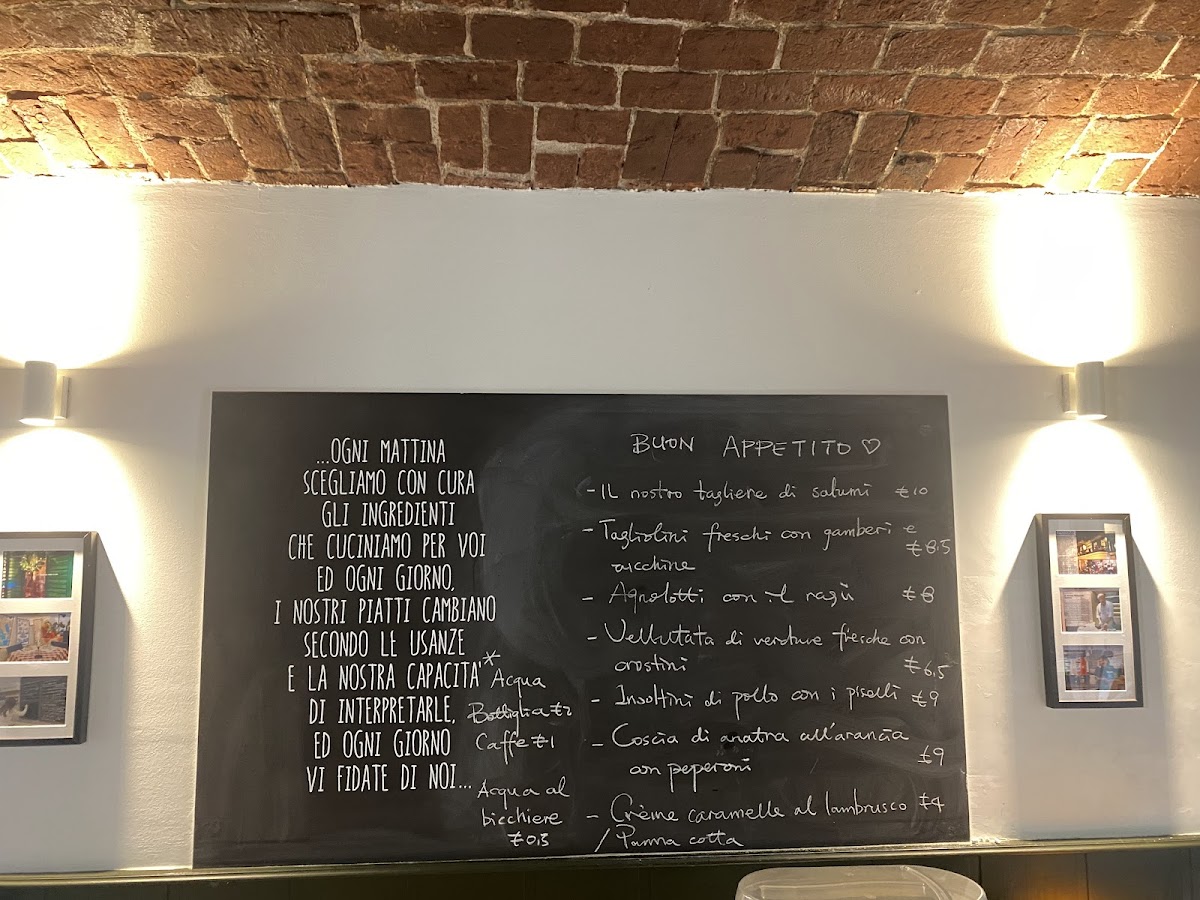 ...OGNI MATTINA
SCEGLIAMO CON CURA
GLI INGREDIENTI
CHE CUCINIAMO PER VOI
ED OGNI GIORNO,
I NOSTRI PIATTI CAMBIANO
SECONDO LE USANZE
E LA NOSTRA CAPACITA'
DI INTERPRETARLE,
ED OGNI GIORNO
VI FIDATE DI NOI...
* Acqua
Bottiglia €2
Caffe €1
Acqua al
bicchiere
€0,5
BUON APPETITO ♡
- IL nostro tagliere di salumi €10
- Tagliolini freschi con gamberi e
€8,5
zucchine
- Agnolotti con il ragù €8
- Vellutata di verdure fresche con
crostini €6,5
- Involtini di pollo con i piselli €9
- Coscia di anatra all'arancia
con peperoni €9
- Crème caramelle al lambrusco €4
/ Panna cotta